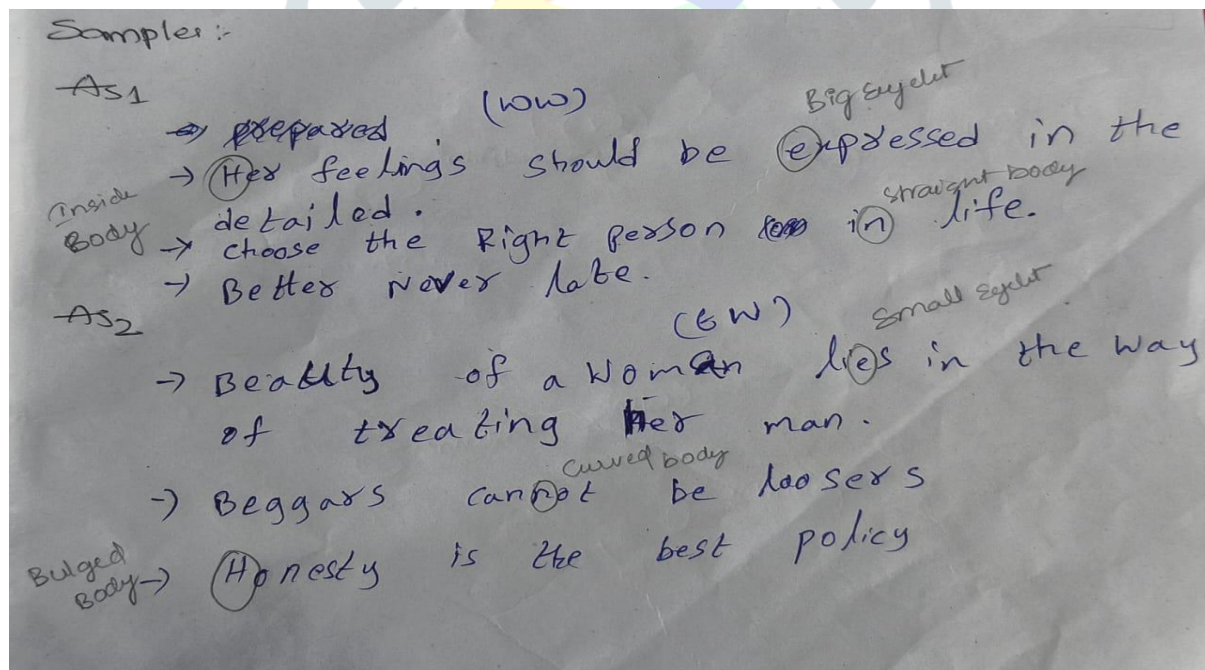 Samples :-
AS1
(WW)
Big Eyelet
→ prepared
→ Her feelings should be expressed in the
Inside Body
straight body
detailed.
→ choose the Right person in life.
→ Better Never late.
AS2
(GW)
Small Eyelet
→ Beauty of a Woman lies in the way
of treating her man.
Curved body
→ Beggars cannot be loosers
Bulged Body
→ Honesty is the best policy